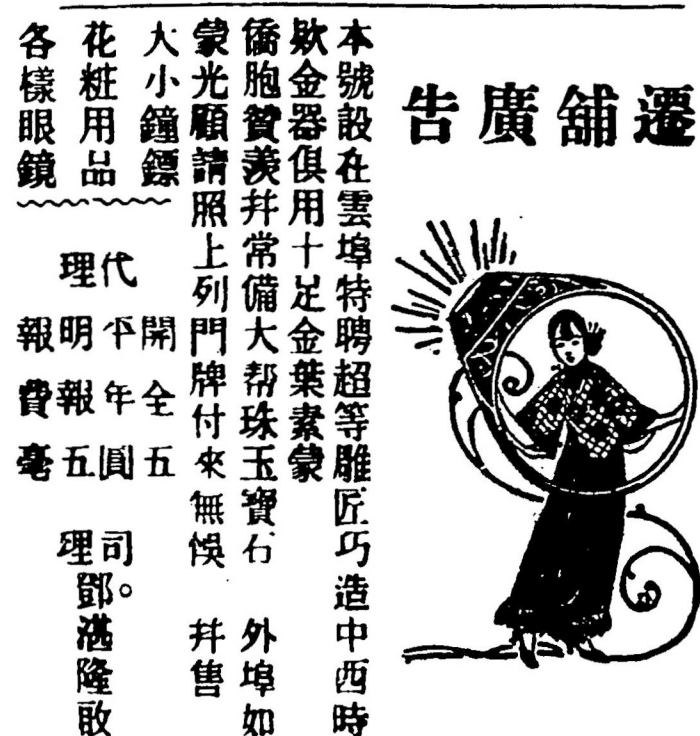 遷舖廣告
本號設在雲埠特聘超等雕匠巧造中西時
欵金器俱用十足金葉素蒙
僑胞贊羨幷常備大帮珠玉寶石 外埠如
蒙光顧請照上列門牌付來無悞 幷售
大小鐘鏢
花粧用品
各樣眼鏡
代理
開平明報
全年報費
五圓五毫
司理。
鄧湛隆敢